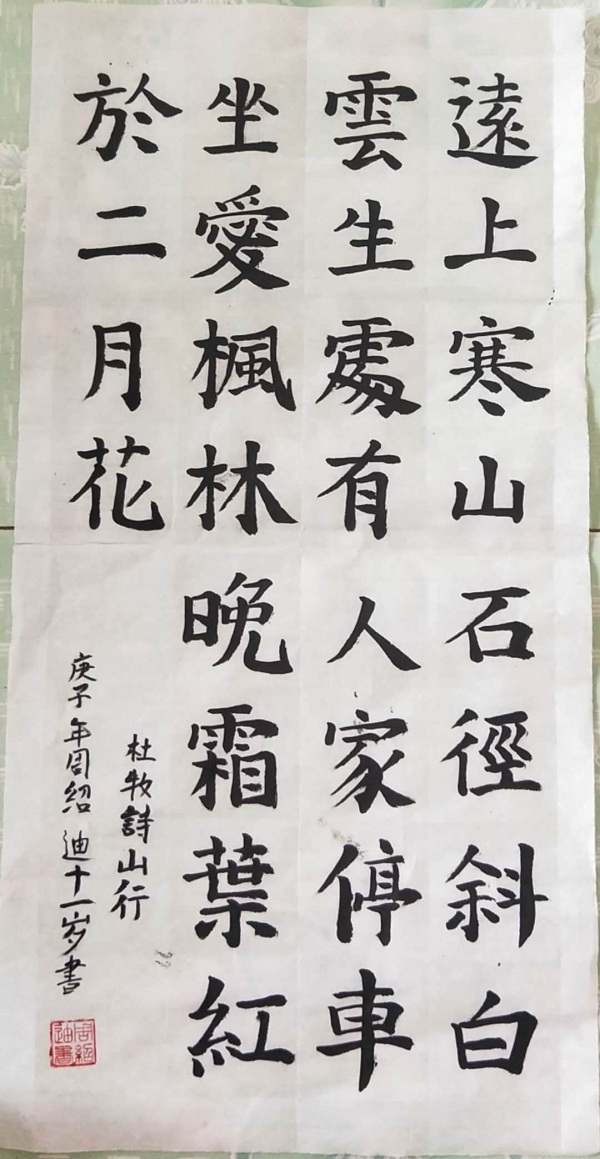 遠上寒山石徑斜白
雲生處有人家停車
坐愛楓林晚霜葉紅
於二月花
杜牧詩山行
庚子年周紹迪十一岁書
周紹迪書